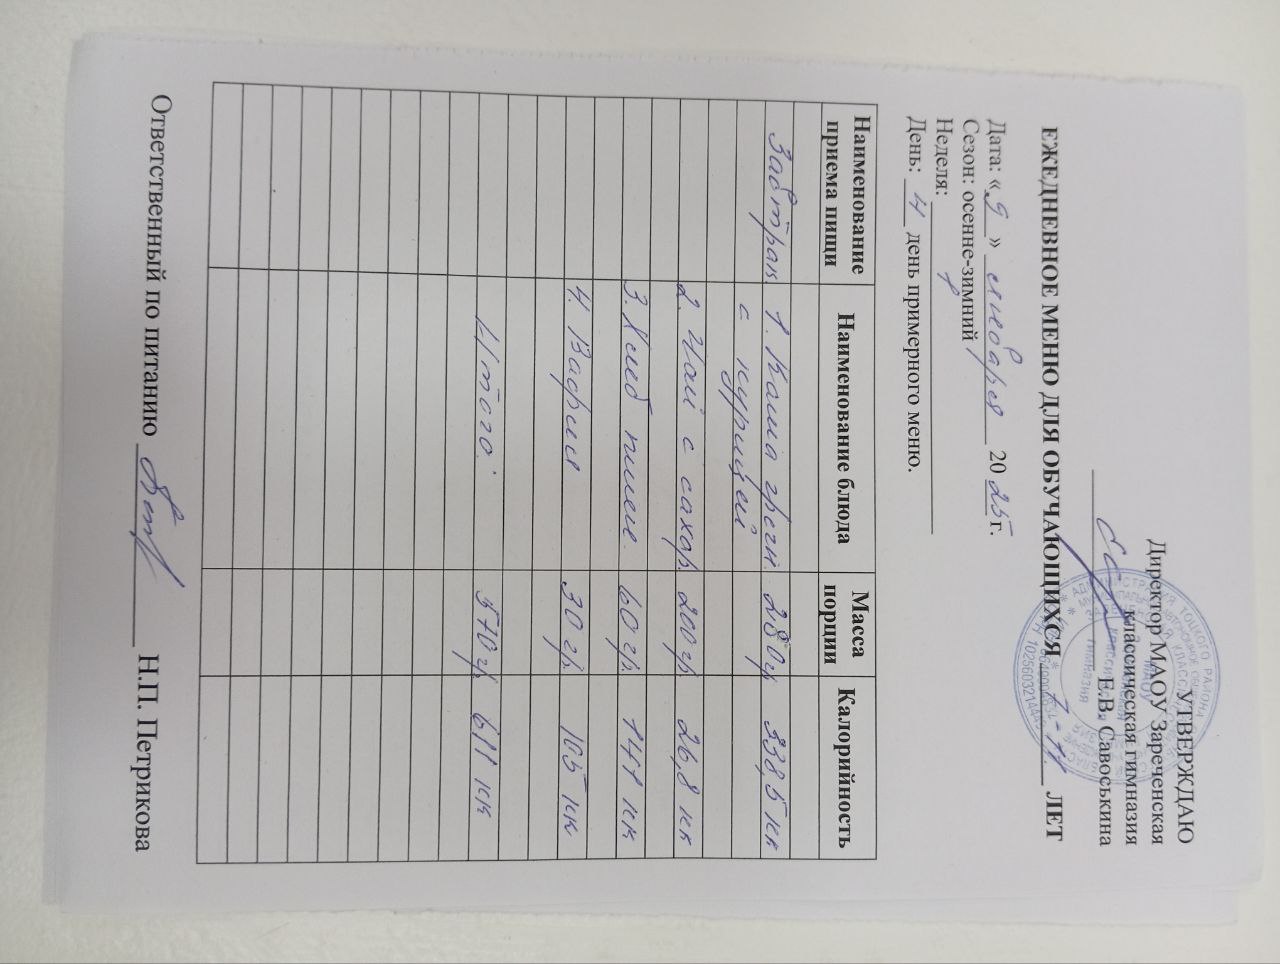 УТВЕРЖДАЮ
Директор МАОУ Зареченская
классическая гимназия
Е.В. Савоськина
ЕЖЕДНЕВНОЕ МЕНЮ ДЛЯ ОБУЧАЮЩИХСЯ 7-11 ЛЕТ
Дата: «9» января 2025 г.
Сезон: осенне-зимний
Неделя:
День: 4 день примерного меню.
Наименование приема пищи Наименование блюда Масса порции Калорийность
Завтрак 1. Каша гречн. 280гр 338,5 кк
с курицей
2. Чай с сахар. 200гр 26,8 кк
3. Хлеб пшен. 60 гр. 141 кк
4. Вафли 30 гр. 105 кк
Итого: 570 гр 611 кк
Ответственный по питанию Н.П. Петрикова